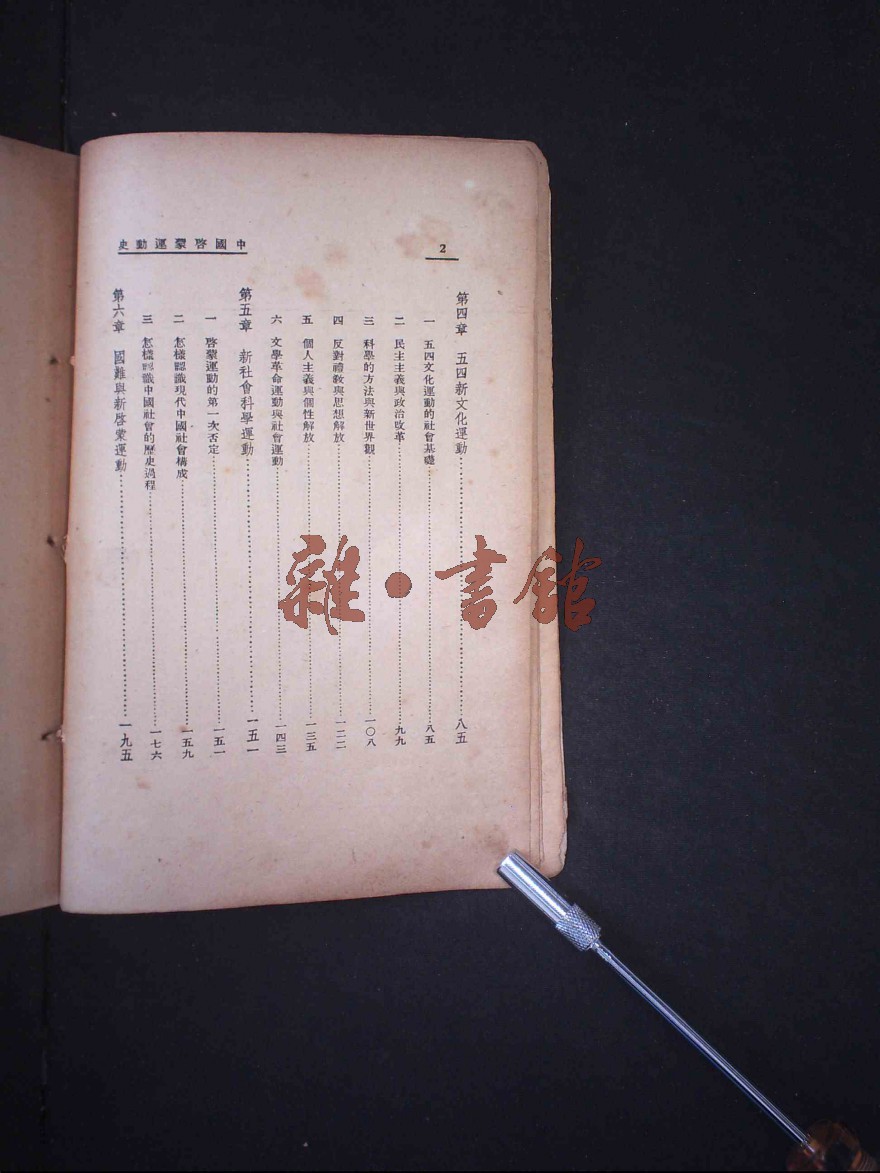 中國啓蒙運動史
2
第四章 五四新文化運動……八五
一 五四文化運動的社會基礎……八五
二 民主主義與政治改革……九九
三 科學的方法與新世界觀……一〇八
四 反對禮敎與思想解放……一二二
五 個人主義與個性解放……一三五
六 文學革命運動與社會運動……一四三
第五章 新社會科學運動……一五一
一 啓蒙運動的第一次否定……一五一
二 怎樣認識現代中國社會構成……一五九
三 怎樣認識中國社會的歷史過程……一七六
第六章 國難與新啓蒙運動……一九五
雜·書館